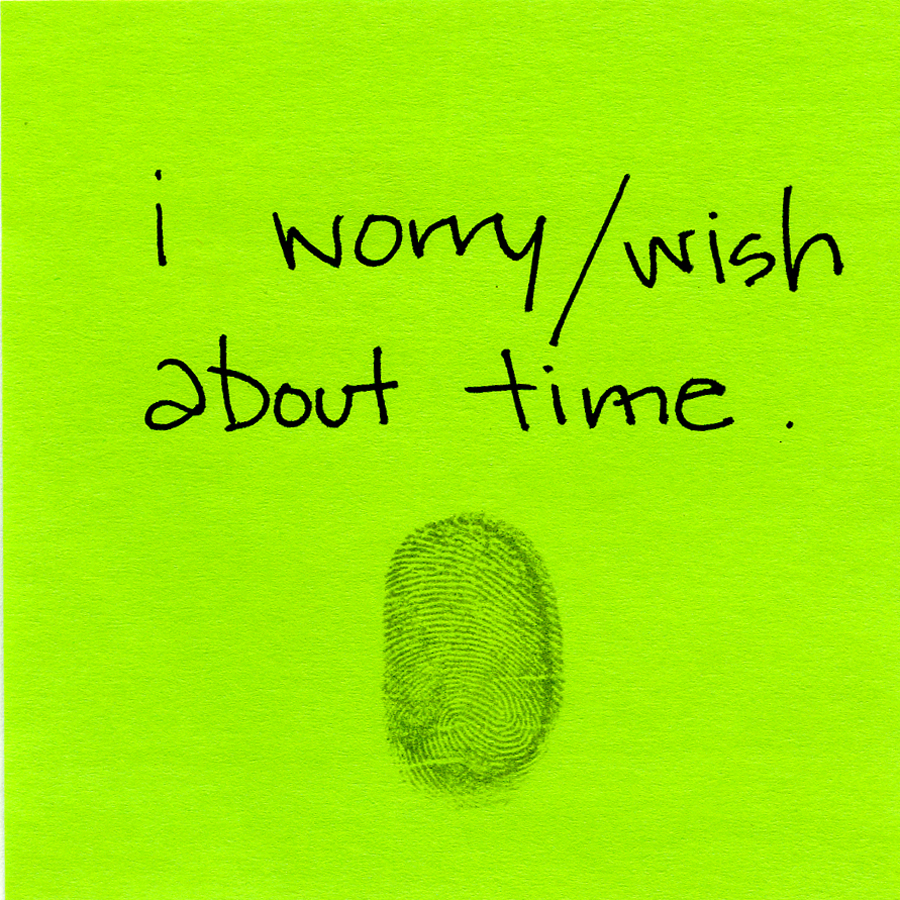 i worry/wish
about time.